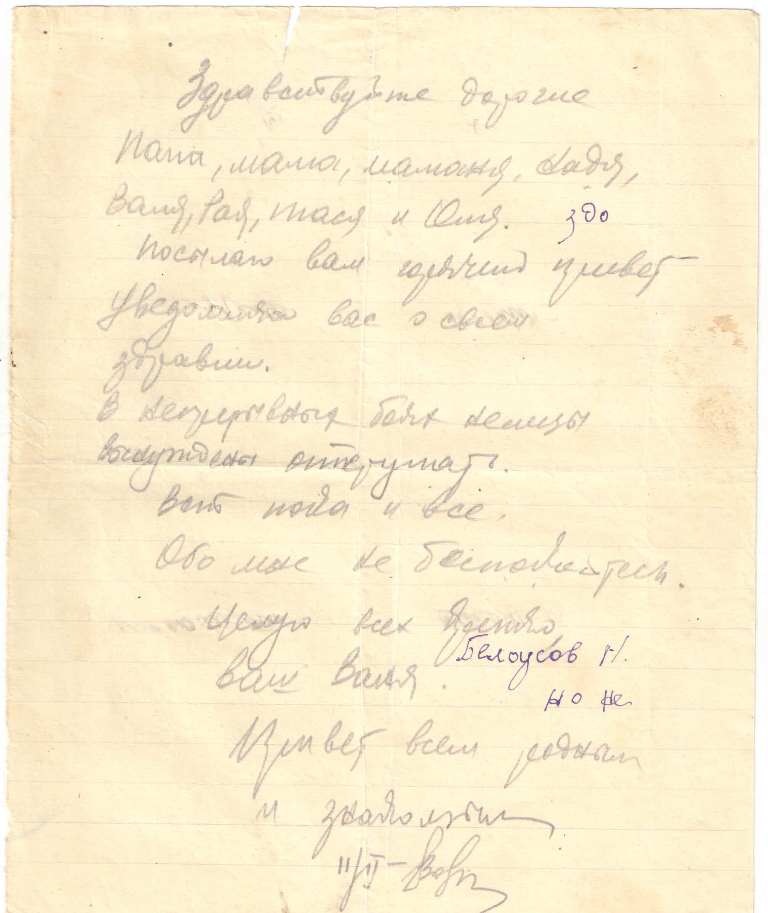 Здравствуйте дорогие
Папа, мама, маманя, Надя,
Валя, Рая, Тася и Юля. здо
Посылаю вам горячий привет
Уведомляю вас о своем
здравии.
В непрерывных боях немцы
вынуждены отступать.
Вот пока и все.
Обо мне не беспокойтесь.
Целую всех крепко,
Белоусов Н.
ваш Ваня.
но не
Привет всем родным
и знакомым
11/II –